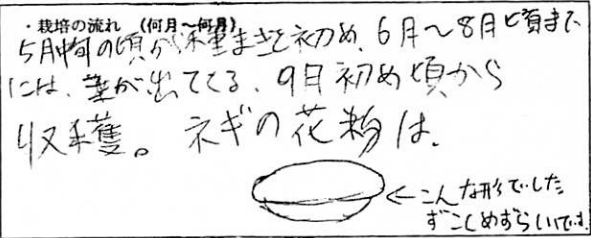 ・栽培の流れ (何月〜何月)
5月中旬の頃から種まきを初め、6月〜8月頃まで
には、葉が出てくる、9月初め頃から
収穫。ネギの花粉は、
←こんな形でした
すこしめずらいです。